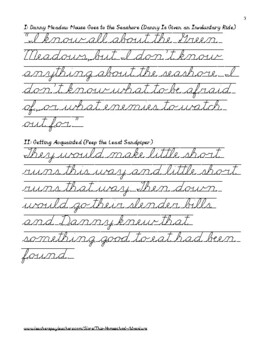 3
I: Danny Meadow Mouse Goes to the Seashore (Danny Is Given an Involuntary Ride)
"I know all about the Green
Meadows, but I don't know
anything about the seashore. I
don't know what to be afraid
of, or what enemies to watch
out for."
II: Getting Acquainted (Peep the Least Sandpiper)
They would make little short
runs this way and little short
runs that way. Then down
would go their slender bills
and Danny knew that
something good to eat had been
found.
www.teacherspayteachers.com/Store/The-Homeschool-Adventure